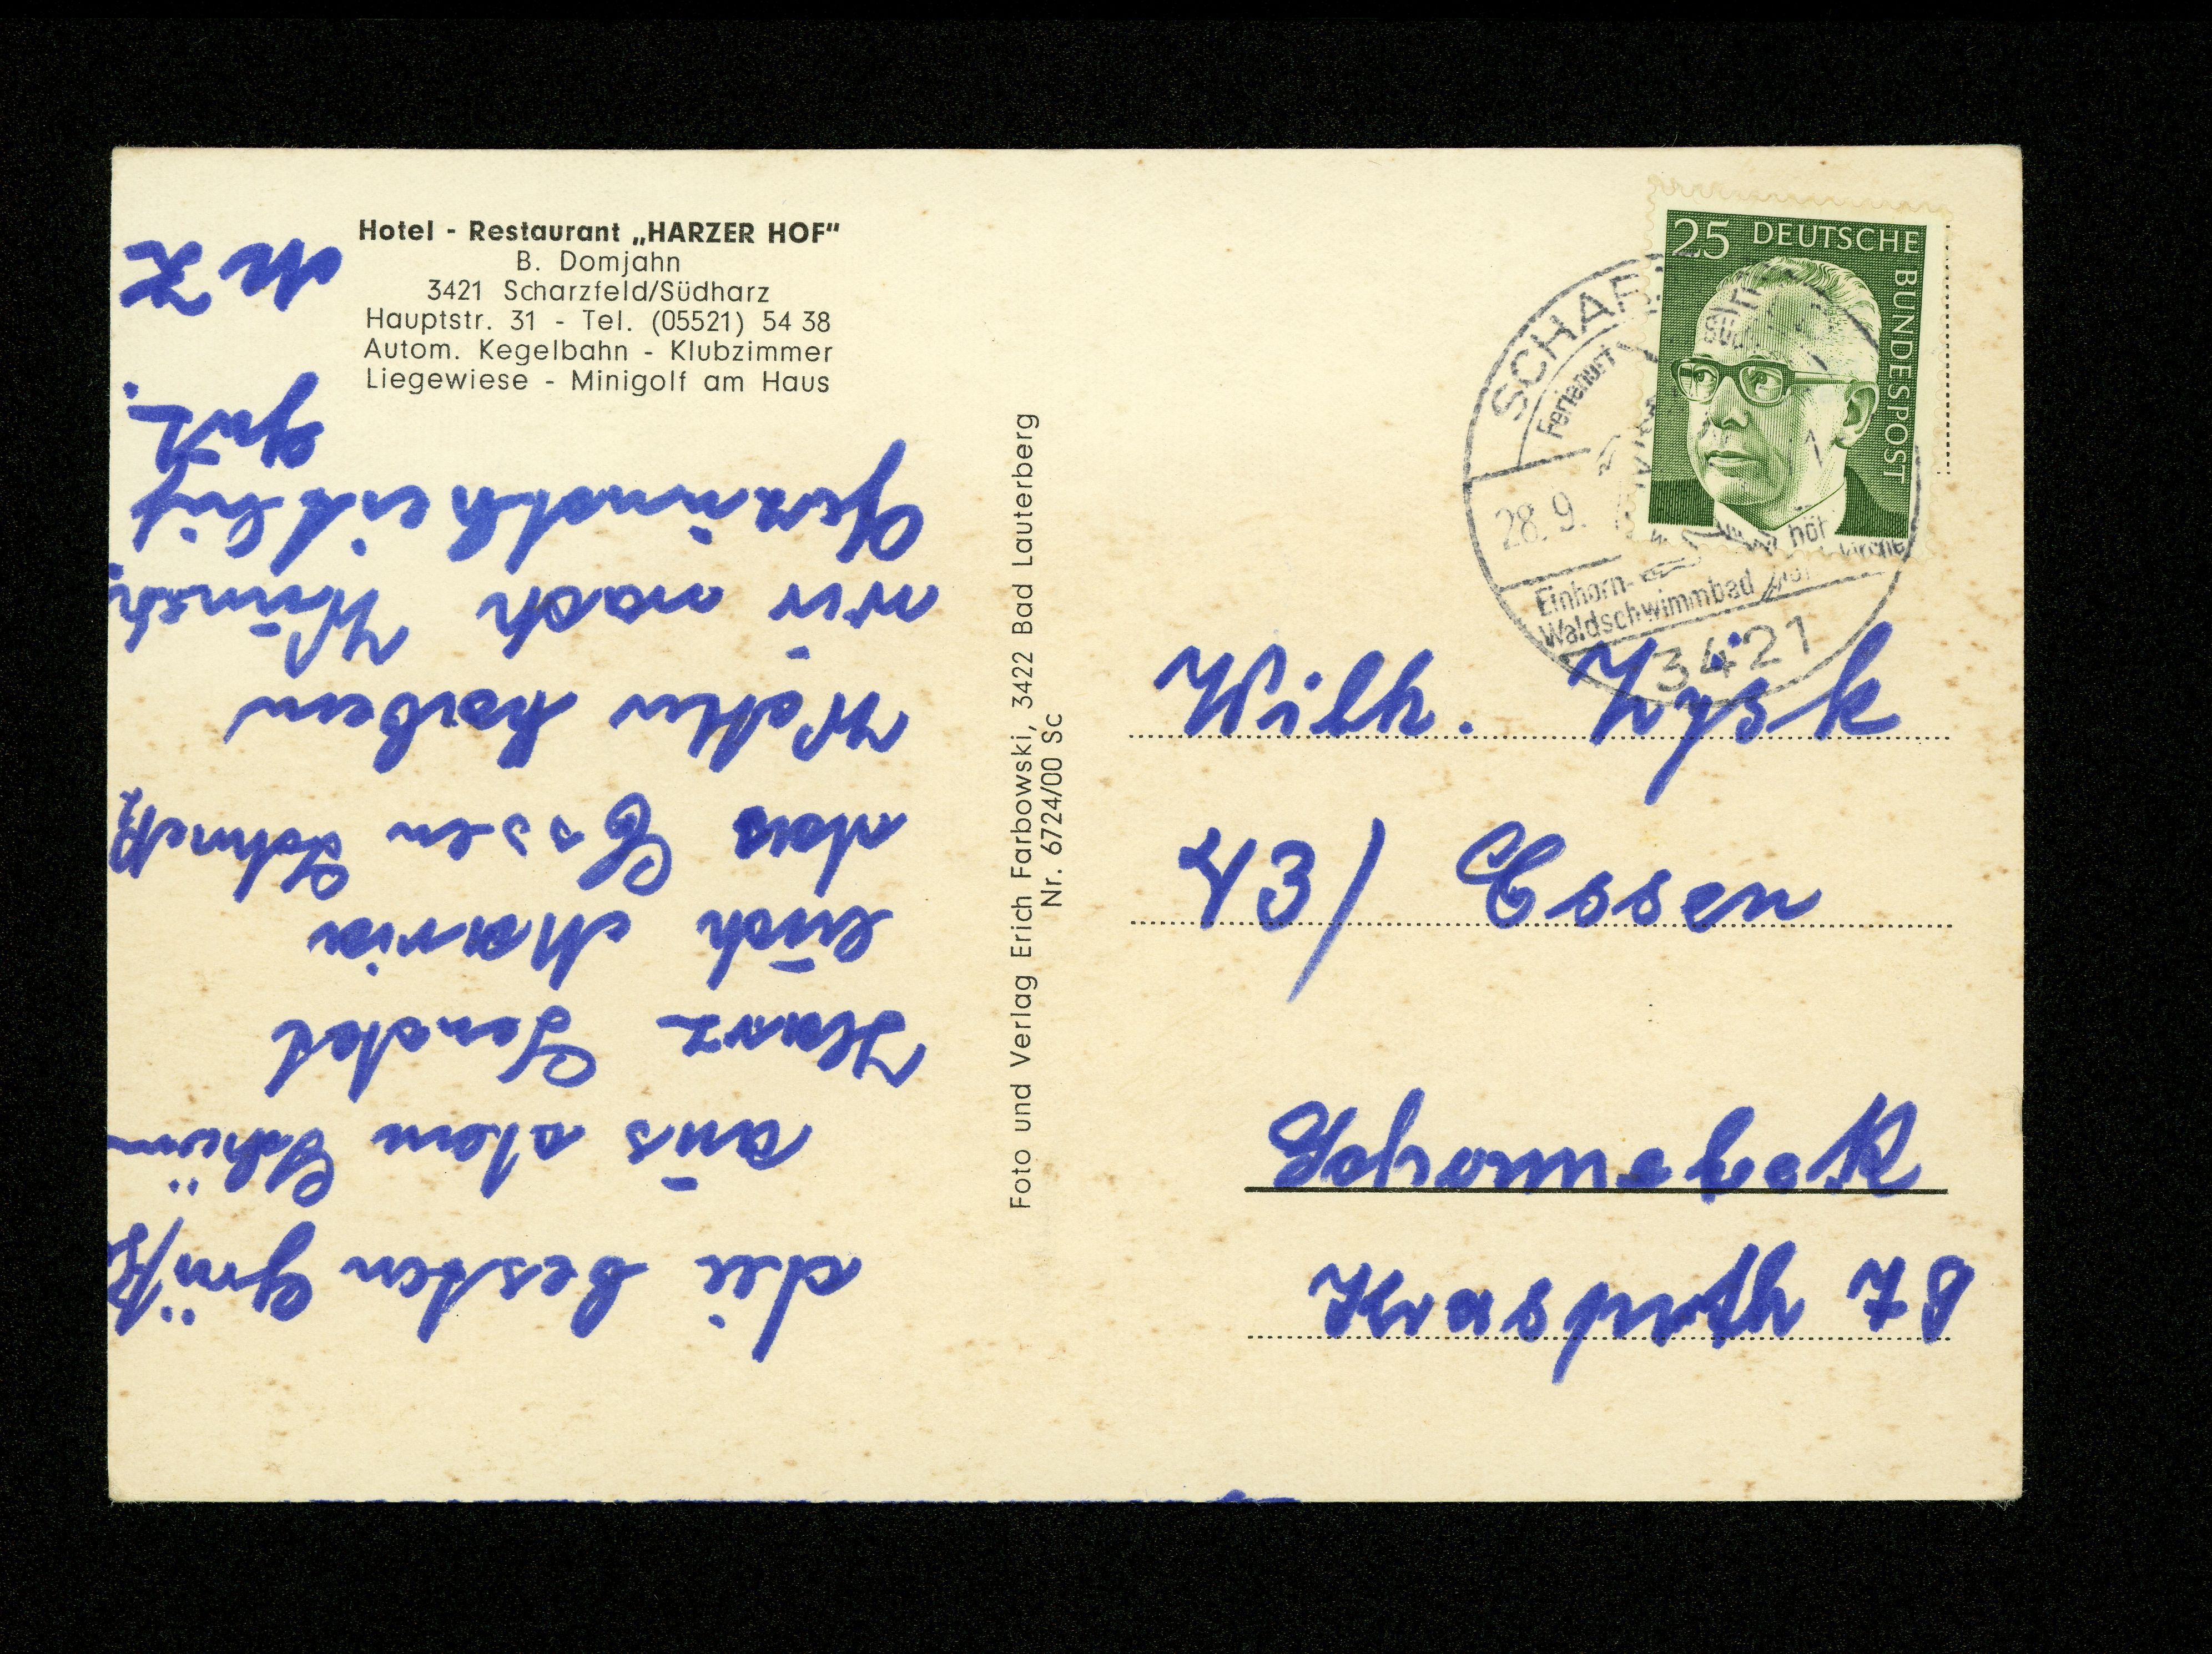 Hotel - Restaurant „HARZER HOF“
B. Domjahn
3421 Scharzfeld/Südharz
Hauptstr. 31 - Tel. (05521) 54 38
Autom. Kegelbahn - Klubzimmer
Liegewiese - Minigolf am Haus
die besten Grüße
aus dem schön
Harz sendet
euch Maria
das Essen schmekt
Wetter haben
wir nach Wunsch,
Gesundheitlich
gut.
M Z
Foto und Verlag Erich Farbowski, 3422 Bad Lauterberg
Nr. 6724/00 Sc
25 DEUTSCHE BUNDESPOST
Ferienort
28. 9.
Einhorn-
Waldschwimmbad
3421
Wilh. Zysk
43/ Essen